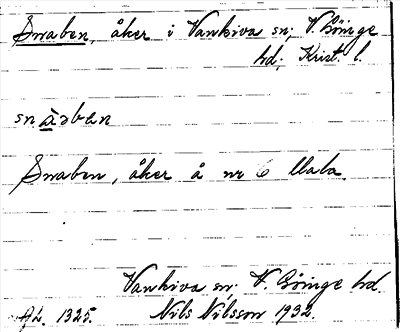 Snaben, åker i Vankiva sn; V. Göinge
hd; Krist. l.
Snaben, åker å nr 6 Mala.
Vankiva sn. V. Göinge hd.
Ak. 1325. Nils Nilsson 1932.